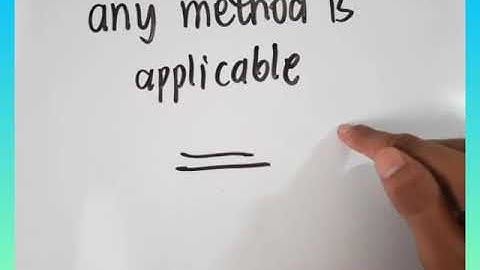 any method is
applicable